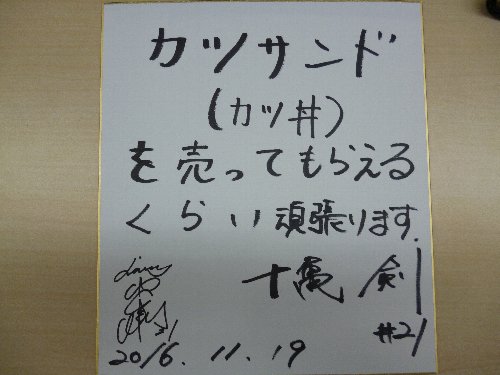 カツサンド
(カツ丼)
を売ってもらえる
くらい頑張ります.
十亀 剣
#21
2016.11.19